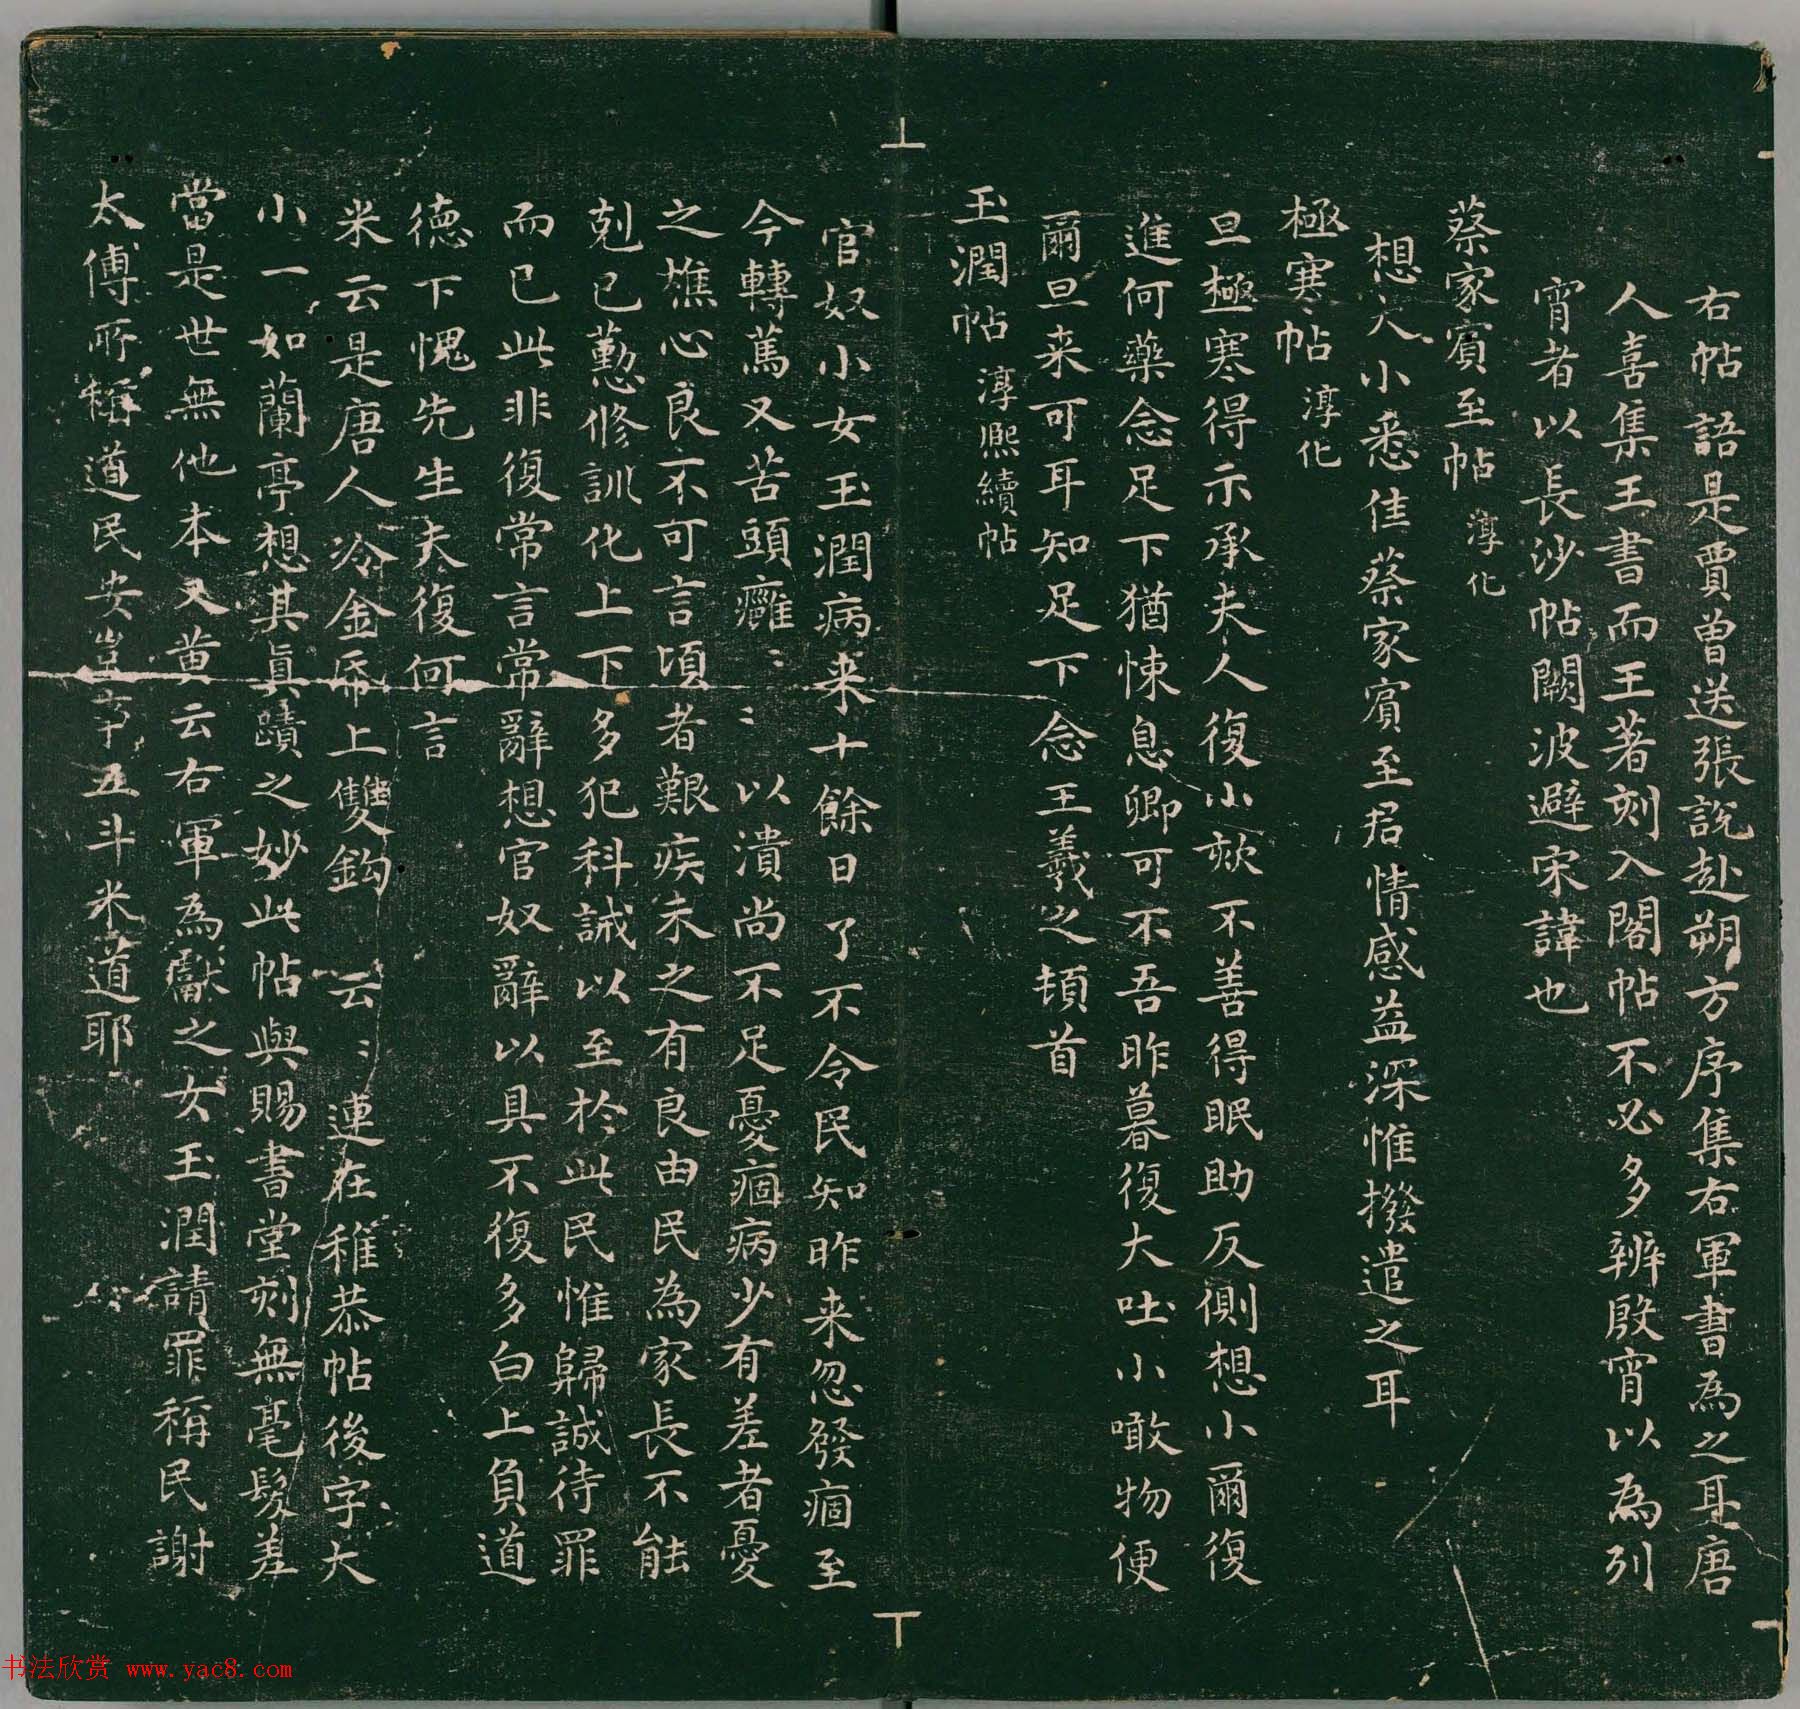 右帖語是賈曾送張說赴朔方序集右軍書為之耳唐
人喜集王書而王著刻入閣帖不必多辨殷宵以為列
宵者以長沙帖闕波避宋諱也
蔡家賓至帖 淳化
想大小悉佳蔡家賓至君情感益深惟撥遣之耳
極寒帖 淳化
旦極寒得示承夫人復小欬不善得眠助反側想小爾復
進何藥念足下猶悚息卿可不吾昨暮復大吐小噉物便
爾旦来可耳知足下念王羲之頓首
玉潤帖 淳熙續帖
官奴小女玉潤病来十餘日了不令民知昨来忽發痼至
今轉篤又苦頭癰:: 以潰尚不足憂痼病少有差者憂
之燋心良不可言頃者艱疾未之有良由民為家長不能
剋己懃修訓化上下多犯科誡以至於此民惟歸誠待罪
而已此非復常言常辭想官奴辭以具不復多白上負道
德下愧先生夫復何言
米云是唐人冷金帋上雙鈎 云:連在稚恭帖後字大
小一如蘭亭想其真蹟之妙此帖與賜書堂刻無毫髮差
當是世無他本又黄云右軍為獻之女玉潤請罪稱民謝
太傅所稱道民安豈亦五斗米道耶
书法欣赏 www.yac8.com